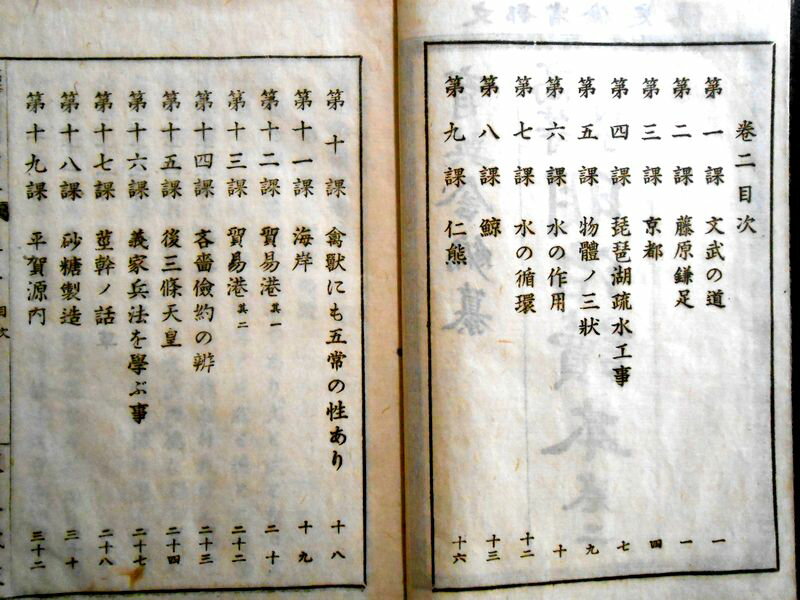 巻二目次
第一課 文武の道 一
第二課 藤原鎌足 一
第三課 京都 四
第四課 琵琶湖疏水工事 七
第五課 物體ノ三状 九
第六課 水の作用 十
第七課 水の循環 十二
第八課 鯨 十三
第九課 仁熊 十六
第十課 禽獸にも五常の性あり 十八
第十一課 海岸 十九
第十二課 貿易港 其一 二十
第十三課 貿易港 其二 二十二
第十四課 吝嗇儉約の辨 二十三
第十五課 後三條天皇 二十四
第十六課 義家兵法を學ぶ事 二十七
第十七課 莖幹ノ話 二十八
第十八課 砂糖製造 三十
第十九課 平賀源內 三十二
目次